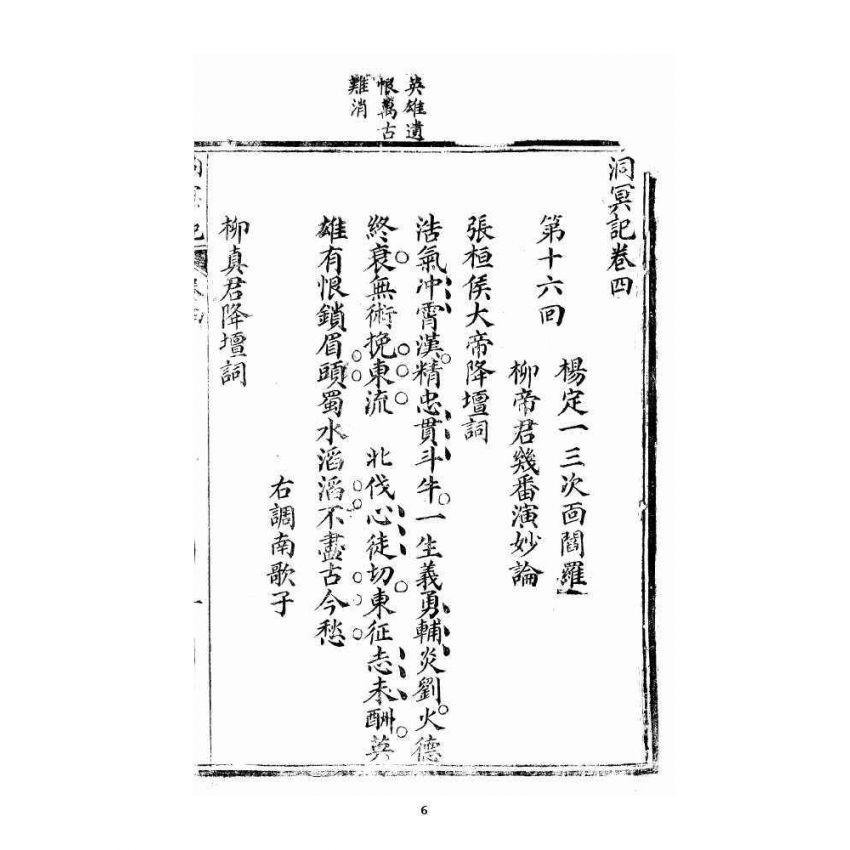 英雄遺
恨萬古
難消
洞冥記卷四
第十六回
楊定一三次面閻羅
柳帝君幾番演妙論
張桓侯大帝降壇詞
浩氣冲霄漢精忠貫斗牛一生義勇輔炎劉火德
終衰無術挽東流　北伐心徒切東征志未酬英
雄有恨鎖眉頭蜀水滔滔不盡古今愁
右調南歌子
柳真君降壇詞
6